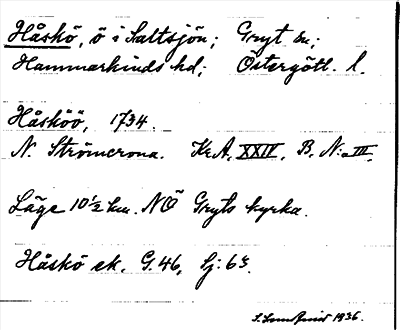 Håskö, ö i Saltsjön; Gryt sn;
Hammarkinds hd; Östergötl. l.
Håsköö, 1734.
N. Strömcrona. Kr.A. XXIV, B, N:o III.
Läge 10 1/2 km. NÖ Gryts kyrka.
Håskö ek. G. 46, Sj: 63.
1936.